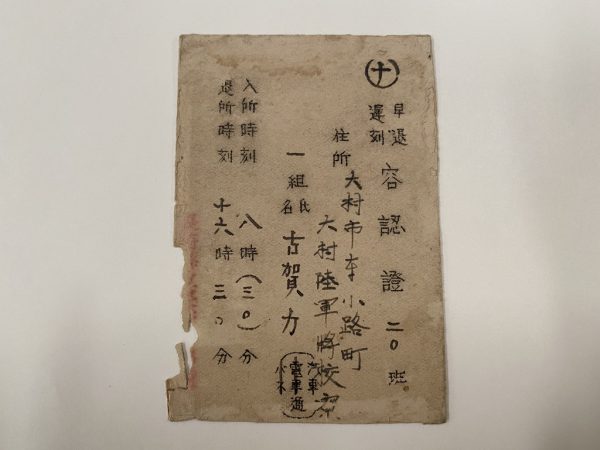 十
早退
遅刻 容認證 二〇班
住所 大村市本小路町
大村陸軍將校寮
一組 氏名 古賀力
汽車
電車通
入所時刻 八時(三〇)分
退所時刻 十六時三〇分